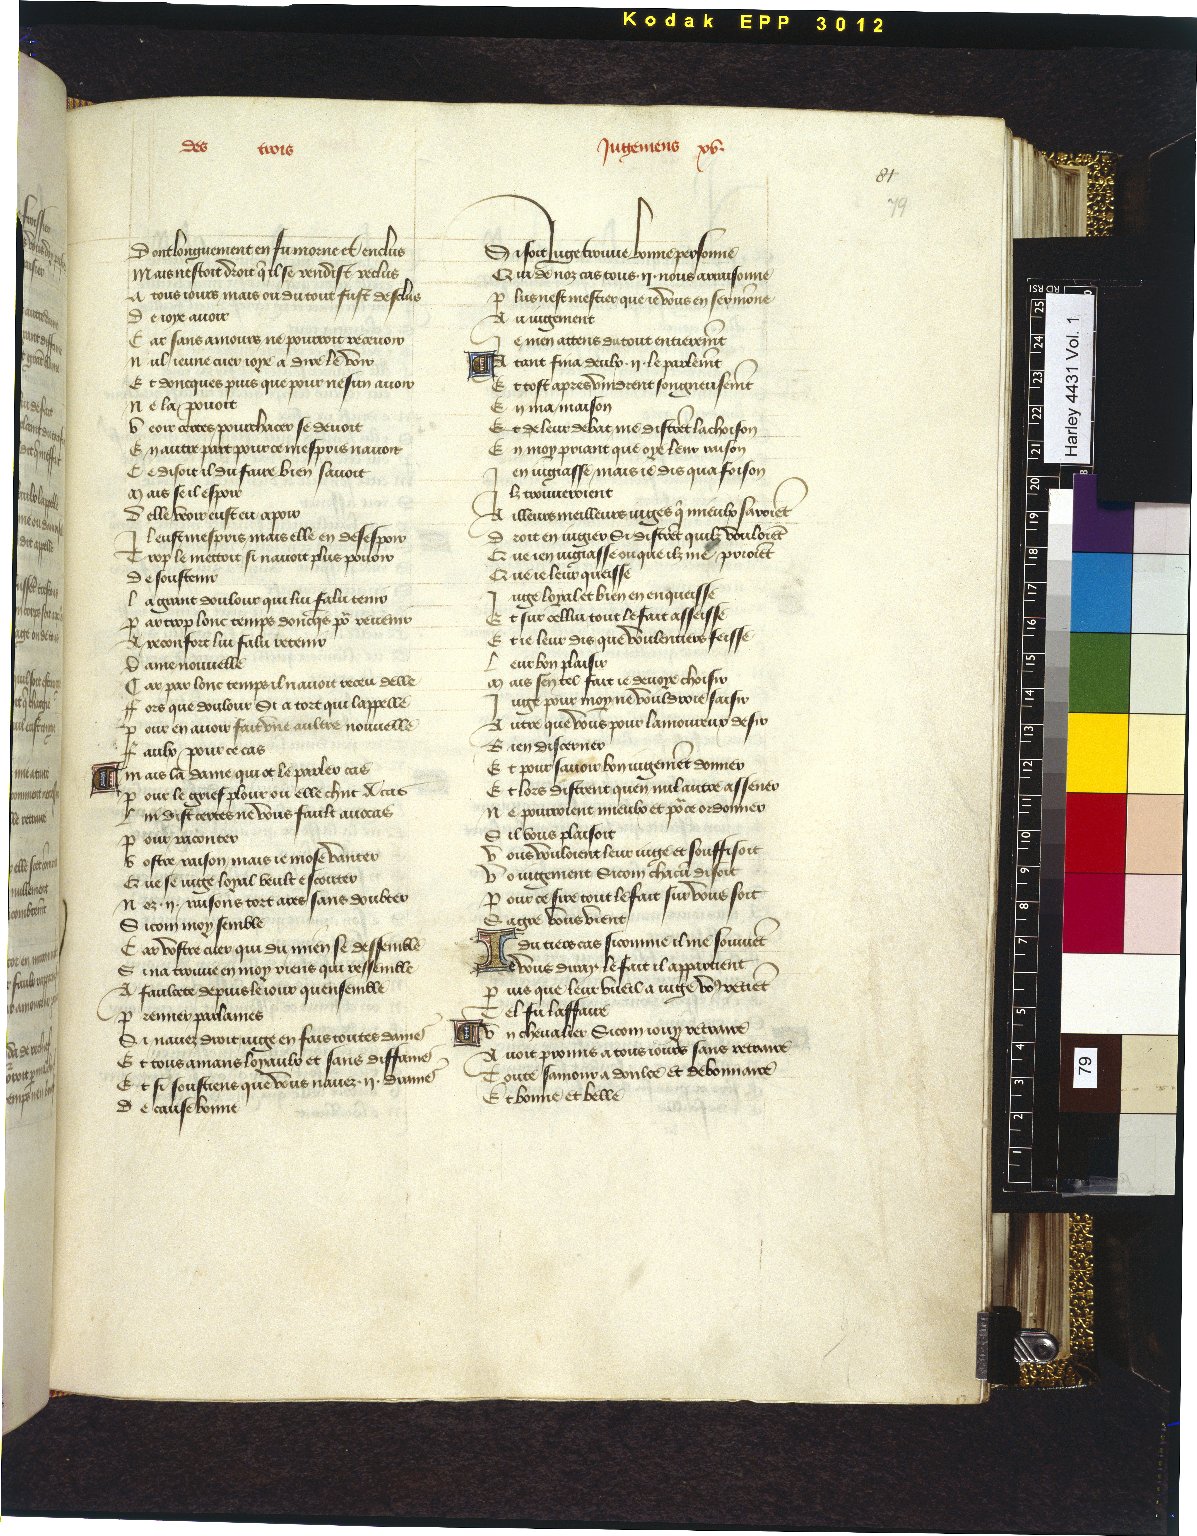 Kodak EPP 3012
des trois
Jugemens xv.
81
79
Dont longuement en fu morne et enclus
Mais nestoit droit q il se rendist reclus
A tous iours mais ou du tout fust desclus
De ioye auoir
Car sans amours ne pourroit receuoir
Nul ieune cuer ioye a dire le voir
Et doncques puis que pour nesun auoir
Ne la pouoit
Veoir certes pourchacer se deuoit
En autre part pour ce mespris nauoit
Ce disoit il du faire bien sauoit
Mais se il espoir
Delle veoir eust eu apoir
Il eust mespris mais elle en desespoir
Trop le mettoit si nauoit plus pouoir
De soustenir
La grant doulour qui lui falu tenir
Par trop lonc temps doncqs po reuenir
A reconfort lui falu retenir
Dame nouuelle
Car par lonc temps il nauoit receu delle
Fors que doulour Si a tort qui lappelle
Pour en auoir fait vne aultre nouuelle
Faulx pour ce cas
Mais la dame qui ot le parler cas
Pour le grief plour ou elle chut
Lui dist certes ne vous fault auocas
Pour raconter
Vostre raison mais ie mose vanter
Que se iuge loyal veult escouter
Noz .ij. raisons tort arez sans doubter
Sicom moy semble
Car vostre cuer qui du mien se dessemble
Sina trouue en moy riens qui ressemble
A faulcete depuis le iour quensemble
Premier parlames
Si nauez droit iuge en fais toutes dames
Et tous amans loyaulx et sans diffames
Et si soustiens que vous nauez .ij. drames
De cause bonne
Si soit iuge trouue bonne personne
Qui de noz cas tous .ij. nous arraisonne
Plus nest mestier que ie vous en sermonne
Au iugement
Je men attens du tout entieremt
Atant fina deulx .ij. le parlemt
Et tost apres vindrent songneusemt
En ma maison
Et de leur debat me distrent lachoison
En moy priant que oye leur raison
Jen iugiasse mais ie dis qua foison
Ilz trouueroient
Ailleurs meilleurs iuges q mieulx saroiet
Droit en iugier Si distret quilz vouloiet
Que ien iugiasse ou que ilz me prioiet
Que ie leur queisse
Juge loyal et bien en enqueisse
Et sur cellui tout le fait asseisse
Et ie leur dis que voulentiers feisse
Leur bon plaisir
Mais sen tel fait ie deuoye choisir
Juge pour moy ne vouldroie saisir
Autre que vous pour lamoureux desir
Bien discerner
Et pour sauoir bon iugemet donner
Et lors distrent quen nul autre assener
Ne pourroient mieulx et poce ordonner
Sil vous plaisoit
Vous vouloient leur iuge et souffisoit
Vo iugement Sicom chacu disoit
Pour ce sire tout le fait sur vous soit
Sagre vous vient
Du tiers cas sicomme il me souuiet
Je vous diray le fait il appartient
Puis que leur vueil a iuge vo retiet
Tel fu laffaire
Vn cheualier Sicom iouy retraire
Auoit promis a tous iours sans retraire
Toute samour a doulce et debonnaire
Et bonne et belle
Harley 4431 Vol. 1
79
25
24
23
22
21
20
19
18
17
16
15
14
13
12
11
10
9
8
7
6
5
4
3
2
1